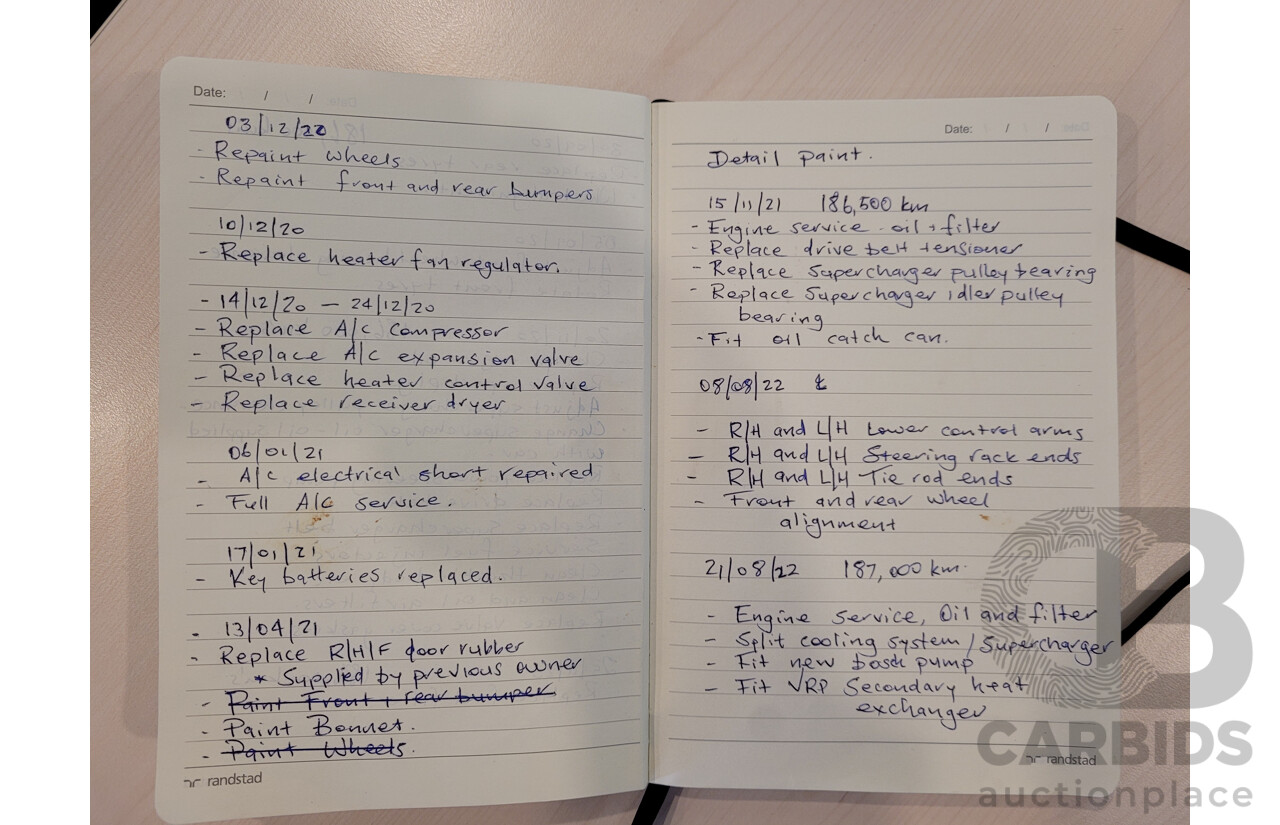 Date: / /
03/12/20
- Repaint wheels
- Repaint front and rear bumpers
10/12/20
- Replace heater fan regulator.
- 14/12/20 — 24/12/20
- Replace A/c compressor
- Replace A/c expansion valve
- Replace heater control valve
- Replace receiver dryer
06/01/21
- A/c electrical short repaired
- Full A/c service.
17/01/21
- Key batteries replaced.
- 13/04/21
- Replace R/H/F door rubber
* Supplied by previous owner
- Paint Front + rear bumper
- Paint Bonnet.
- Paint Wheels.
randstad
Date: / /
Detail paint.
15/11/21 186,500 km
- Engine service - oil + filter
- Replace drive belt tensioner
- Replace Supercharger pulley bearing
- Replace Supercharger idler pulley
bearing
- Fit oil catch can.
08/08/22
- R/H and L/H Lower control arms
- R/H and L/H Steering rack ends
- R/H and L/H Tie rod ends
- Front and rear wheel
alignment
21/08/22 187,000 km.
- Engine service, Oil and filter
- Split cooling system / Supercharger
- Fit new pump
- Fit VRP Secondary heat
exchanger
randstad
CB
CARBIDS
auctionplace